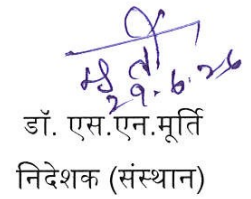 मूर्ति
29.6.26
डॉ. एस.एन.मूर्ति
निदेशक (संस्थान)